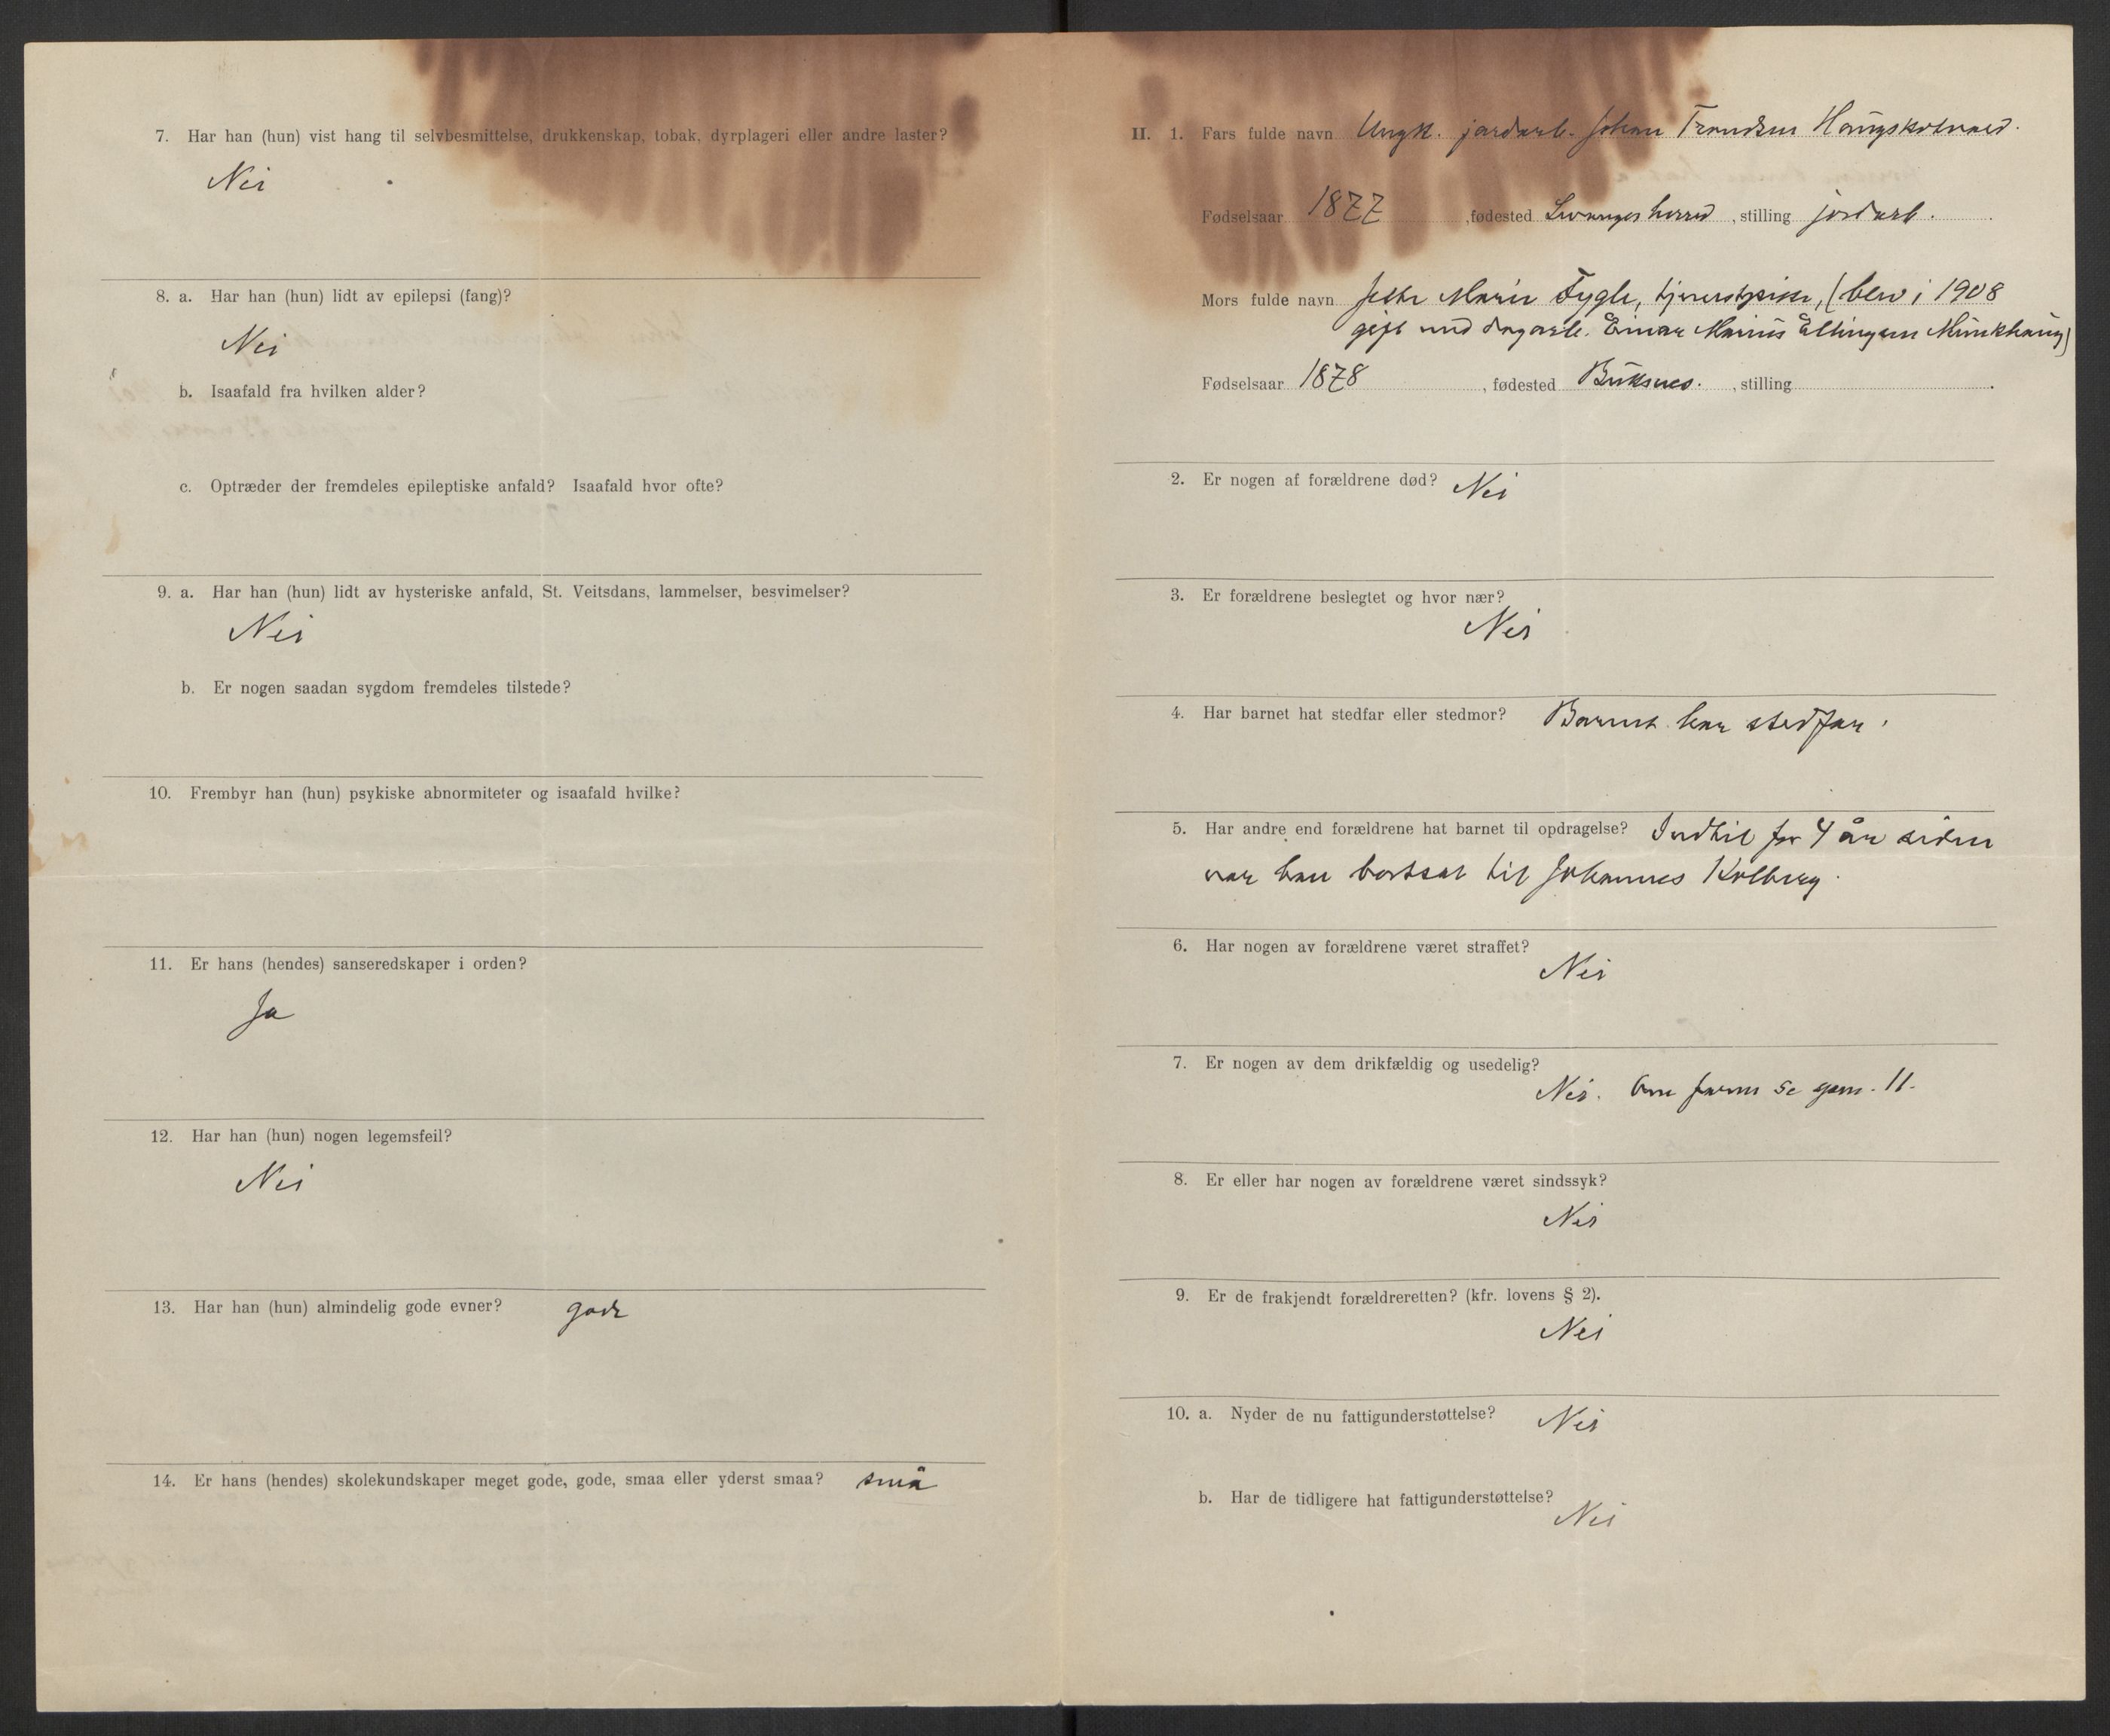 7. Har han (hun) vist hang til selvbesmittelse, drukkenskap, tobak, dyrplageri eller andre laster?
Nei
8. a. Har han (hun) lidt av epilepsi (fang)?
Nei
b. Isaafald fra hvilken alder?
c. Optræder der fremdeles epileptiske anfald? Isaafald hvor ofte?
9. a. Har han (hun) lidt av hysteriske anfald, St. Veitsdans, lammelser, besvimelser?
Nei
b. Er nogen saadan sygdom fremdeles tilstede?
10. Frembyr han (hun) psykiske abnormiteter og isaafald hvilke?
11. Er hans (hendes) sanseredskaper i orden?
Ja
12. Har han (hun) nogen legemsfeil?
Nei
13. Har han (hun) almindelig gode evner? gode
14. Er hans (hendes) skolekundskaper meget gode, gode, smaa eller yderst smaa? små
II. 1. Fars fulde navn Ungk. jordarb. Johan
Fødselsaar 1877, fødested herred, stilling jordarb.
Mors fulde navn Marie Fygle, (blev i 1908
gift med Einar Marius
Fødselsaar 1878, fødested Buksnes., stilling
2. Er nogen af forældrene død? Nei
3. Er forældrene beslegtet og hvor nær?
Nei
4. Har barnet hat stedfar eller stedmor? Barnet har stedfar.
5. Har andre end forældrene hat barnet til opdragelse? Indtil for 4 år siden
var han bortsat til Johannes Kolberg.
6. Har nogen av forældrene været straffet?
Nei
7. Er nogen av dem drikfældig og usedelig?
Nei. Om faren se 11.
8. Er eller har nogen av forældrene været sindssyk?
Nei
9. Er de frakjendt forældreretten? (kfr. lovens § 2).
Nei
10. a. Nyder de nu fattigunderstøttelse? Nei
b. Har de tidligere hat fattigunderstøttelse?
Nei